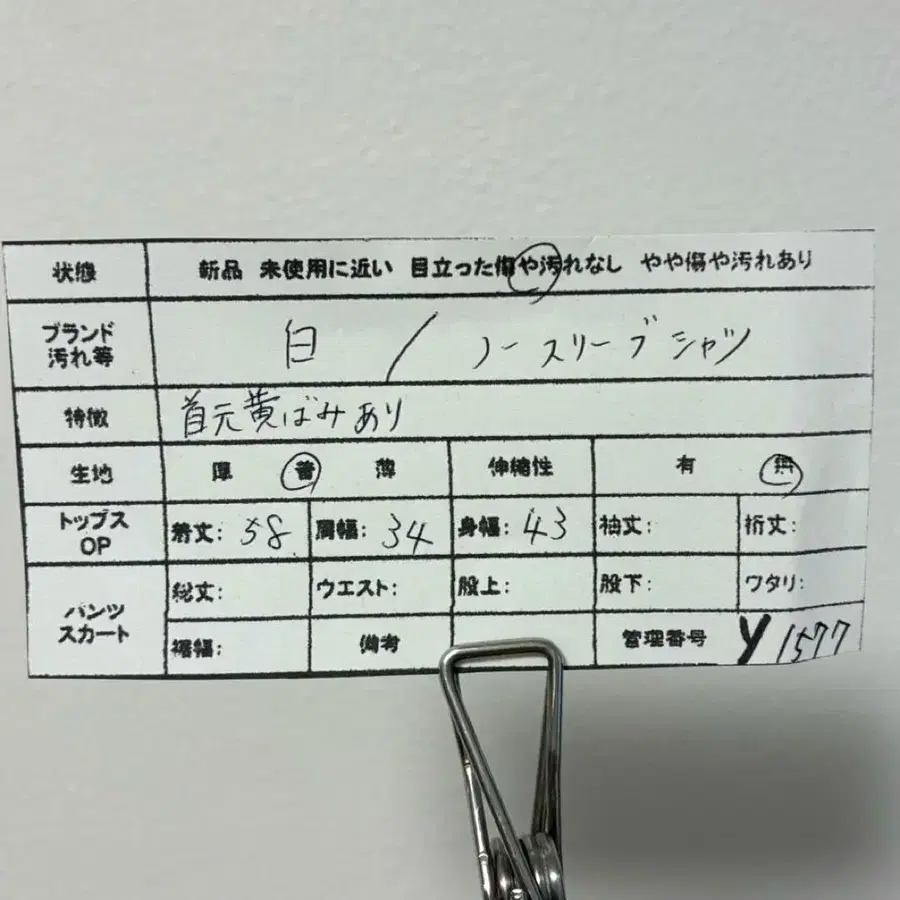 状態 新品 未使用に近い 目立った傷や汚れなし やや傷や汚れあり
ブランド 汚れ等 白 / ノースリーブシャツ
特徴 首元黄ばみあり
生地 厚 普 薄 伸縮性 有 無
トップス OP 着丈: 58 肩幅: 34 身幅: 43 袖丈: 裄丈:
パンツ スカート 総丈: ウエスト: 股上: 股下: ワタリ:
裾幅: 備考 管理番号 y 1577